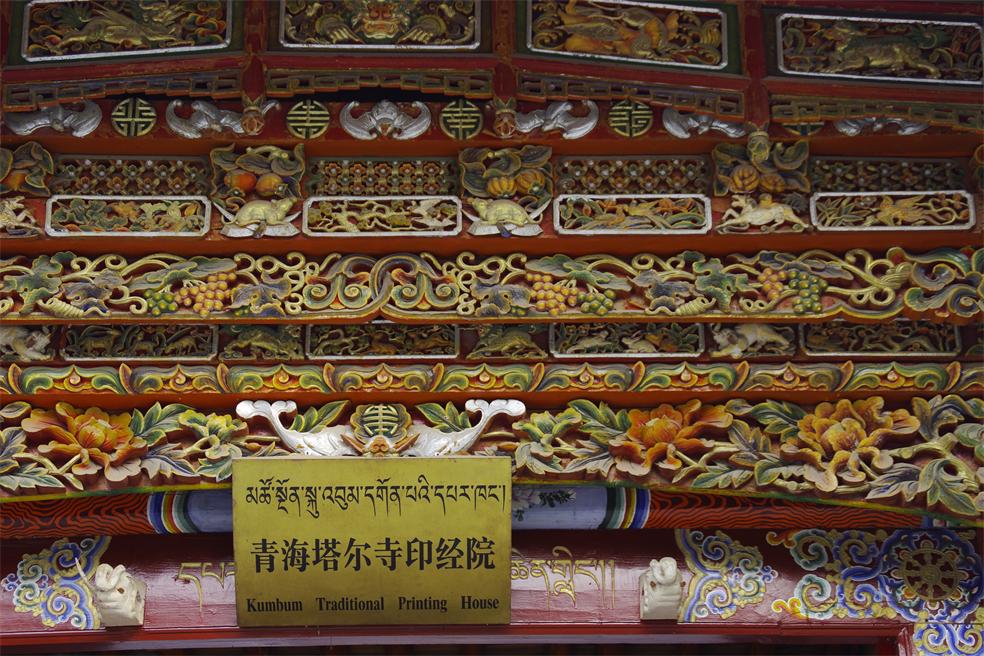 མཚོ་སྔོན་སྐུ་འབུམ་དགོན་པའི་དཔར་ཁང་།
青海塔尔寺印经院
Kumbum Traditional Printing House